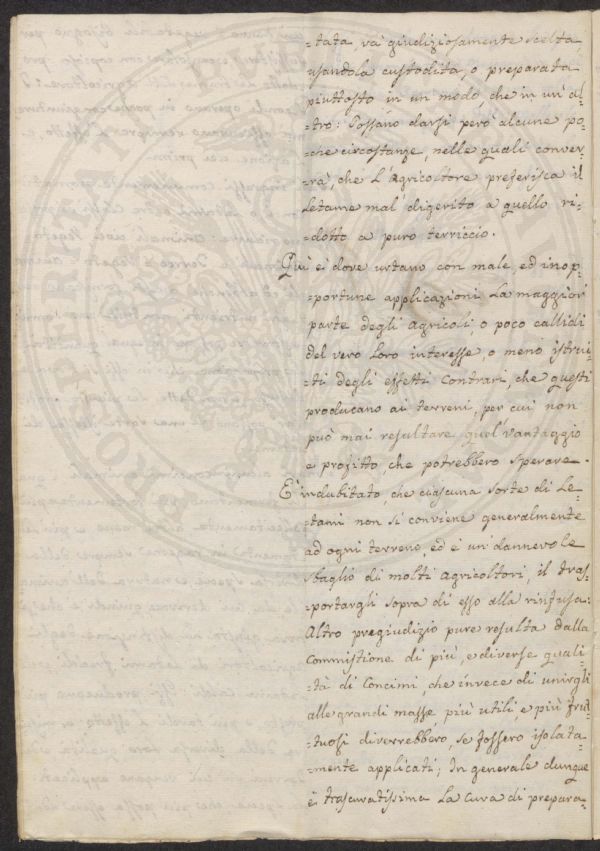 =tata, và giudiziosamente scelta,
usandola custodita, o preparata
piuttosto in un modo, che in un'al-
=tro: Possano darsi però alcune po-
=che circostanze, nelle quali conver-
=rà, che L'agricoltore preferisca il
Letame mal' digerito a quello ri-
=dotto a puro terriccio.
Qui è dove urtano con male, ed inop-
=portune applicazioni La maggior
parte degli agricoli, o poco callidi
del vero Loro interesse, o meno istrui-
=ti degli effetti contrari, che questi
producano ai terreni, per cui non
può mai resultare quel vantaggio
e profitto, che potrebbero sperare.
E' indubitato, che ciascuna sorte di Le-
=tami non si conviene generalmente
ad ogni terreno, ed è un dannevole
sbaglio di molti agricoltori, il tras-
=portargli sopra di esso alla rinfusa:
Altro pregiudizio pure resulta dalla
Commistione di più, e diverse quali-
=tà di Concimi, che invece di unirgli
alle grandi masse, più utili, e più frut-
=tuosi diverrebbero, se fossero isolata-
=mente applicati; In generale dunque
è trascuratissima La cura di prepara-